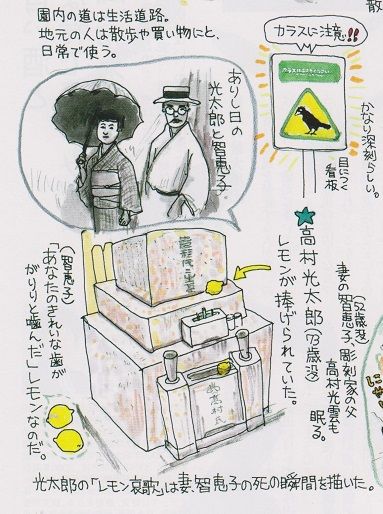 園内の道は生活道路。
地元の人は散歩や買い物にと、
日常で使う。
カラスに注意!!
かなり深刻らしい。
目につく
看板
ありし日の
光太郎と智恵子
★高村光太郎(73歳没)
レモンが捧げられていた。
妻の智恵子、彫刻家の父
(52歳没)
高村光雲も
眠る。
(智恵子)
「あなたのきれいな歯が
がりりと噛んだ」レモンなのだ。
高村氏
光太郎の「レモン哀歌」は妻、智恵子の死の瞬間を描いた。